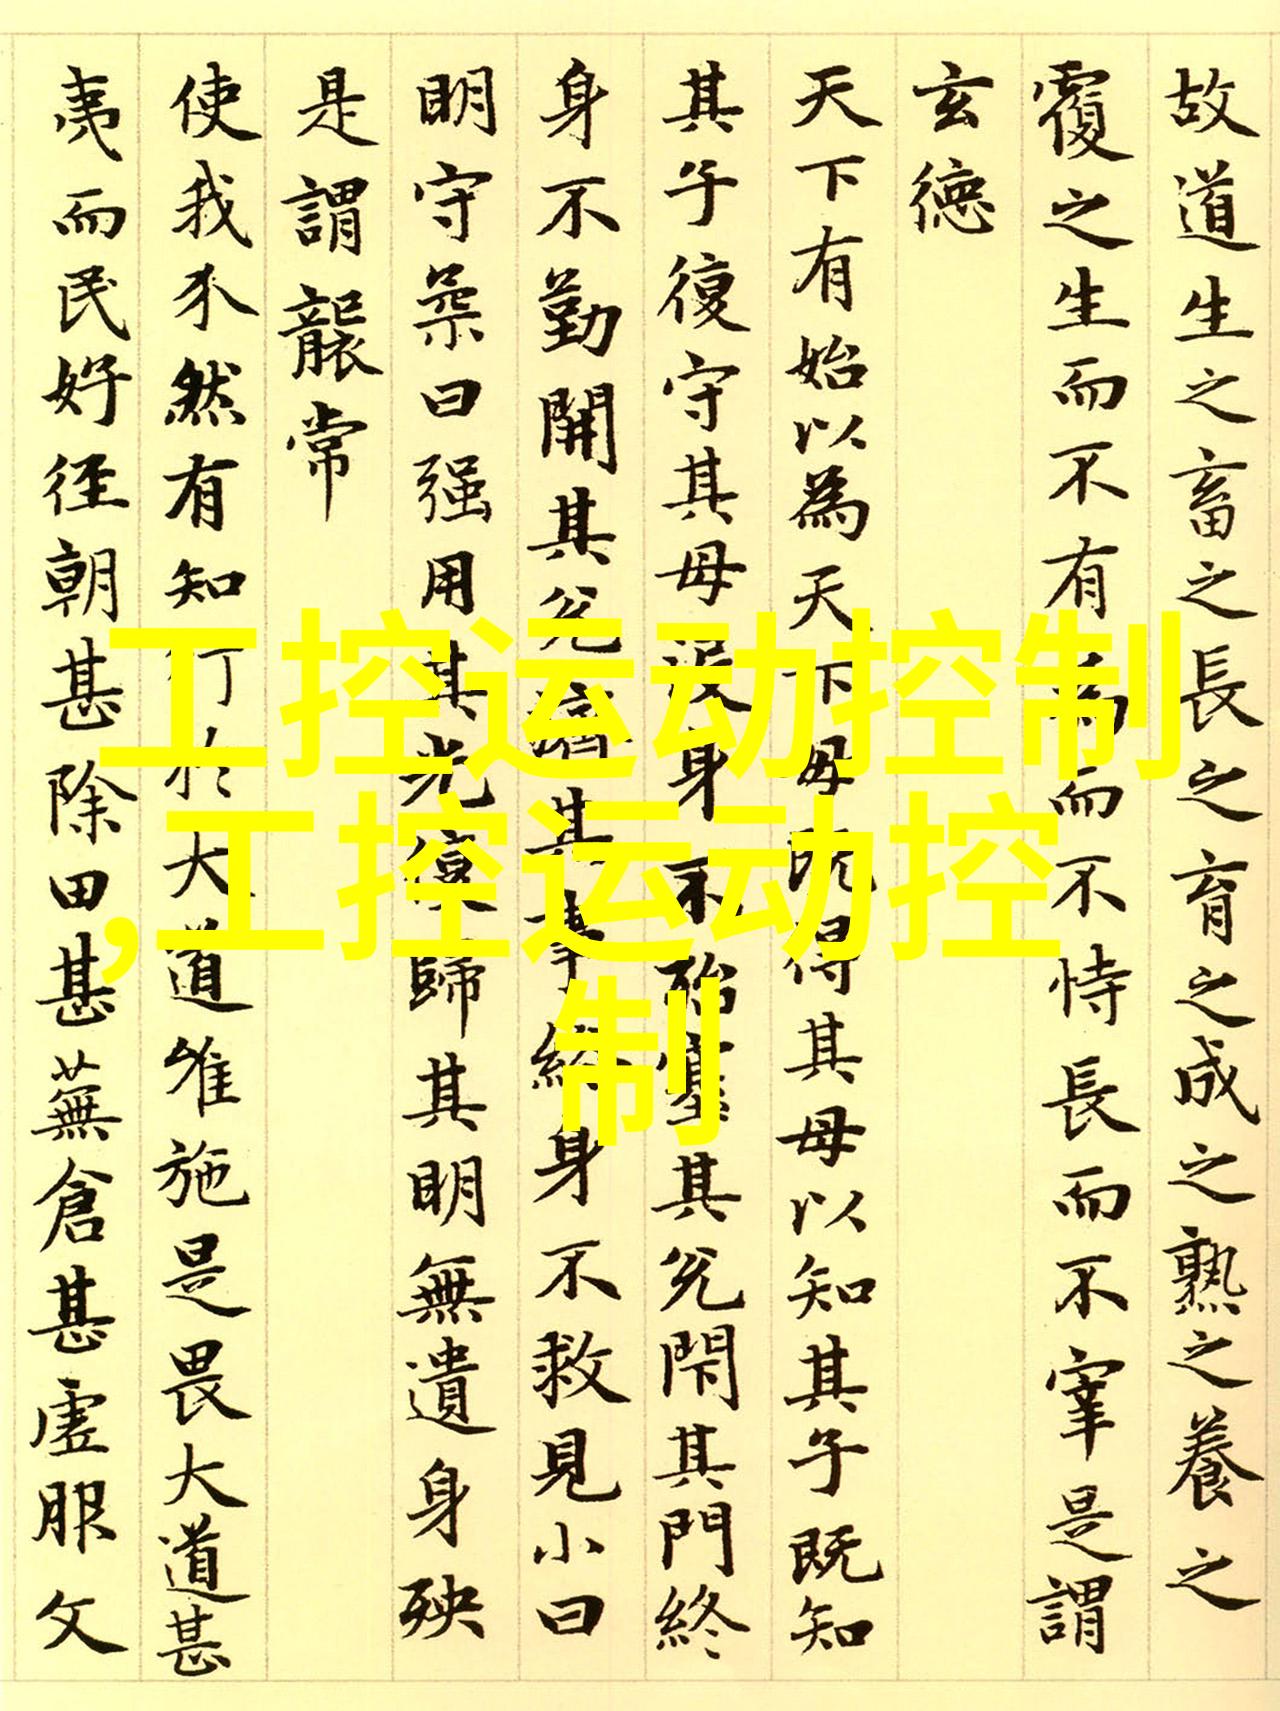 故道生之畜之長之育之成之熟之養之
覆之生而不有為而不恃長而不宰是謂
玄德
天下有始以為天下母既得其母以知其子既知
其子復守其母沒身不殆塞其兌閇其門終
身不勤開其兌濟其事終身不救見小曰
明守柔曰强用其光復歸其明無遺身殃
是謂襲常
使我介然有知行於大道唯施是畏大道甚
夷而民好徑朝甚除田甚蕪倉甚虛服文
工控运动控制
,工控运动控
制